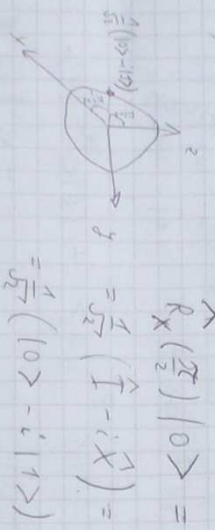 R̂ₓ(π/2) |0> =
= 1/√2 (Î - iX̂) =
= 1/√2 (|0> - i|1>)
z
y
1/√2 (|0> - i|1>)